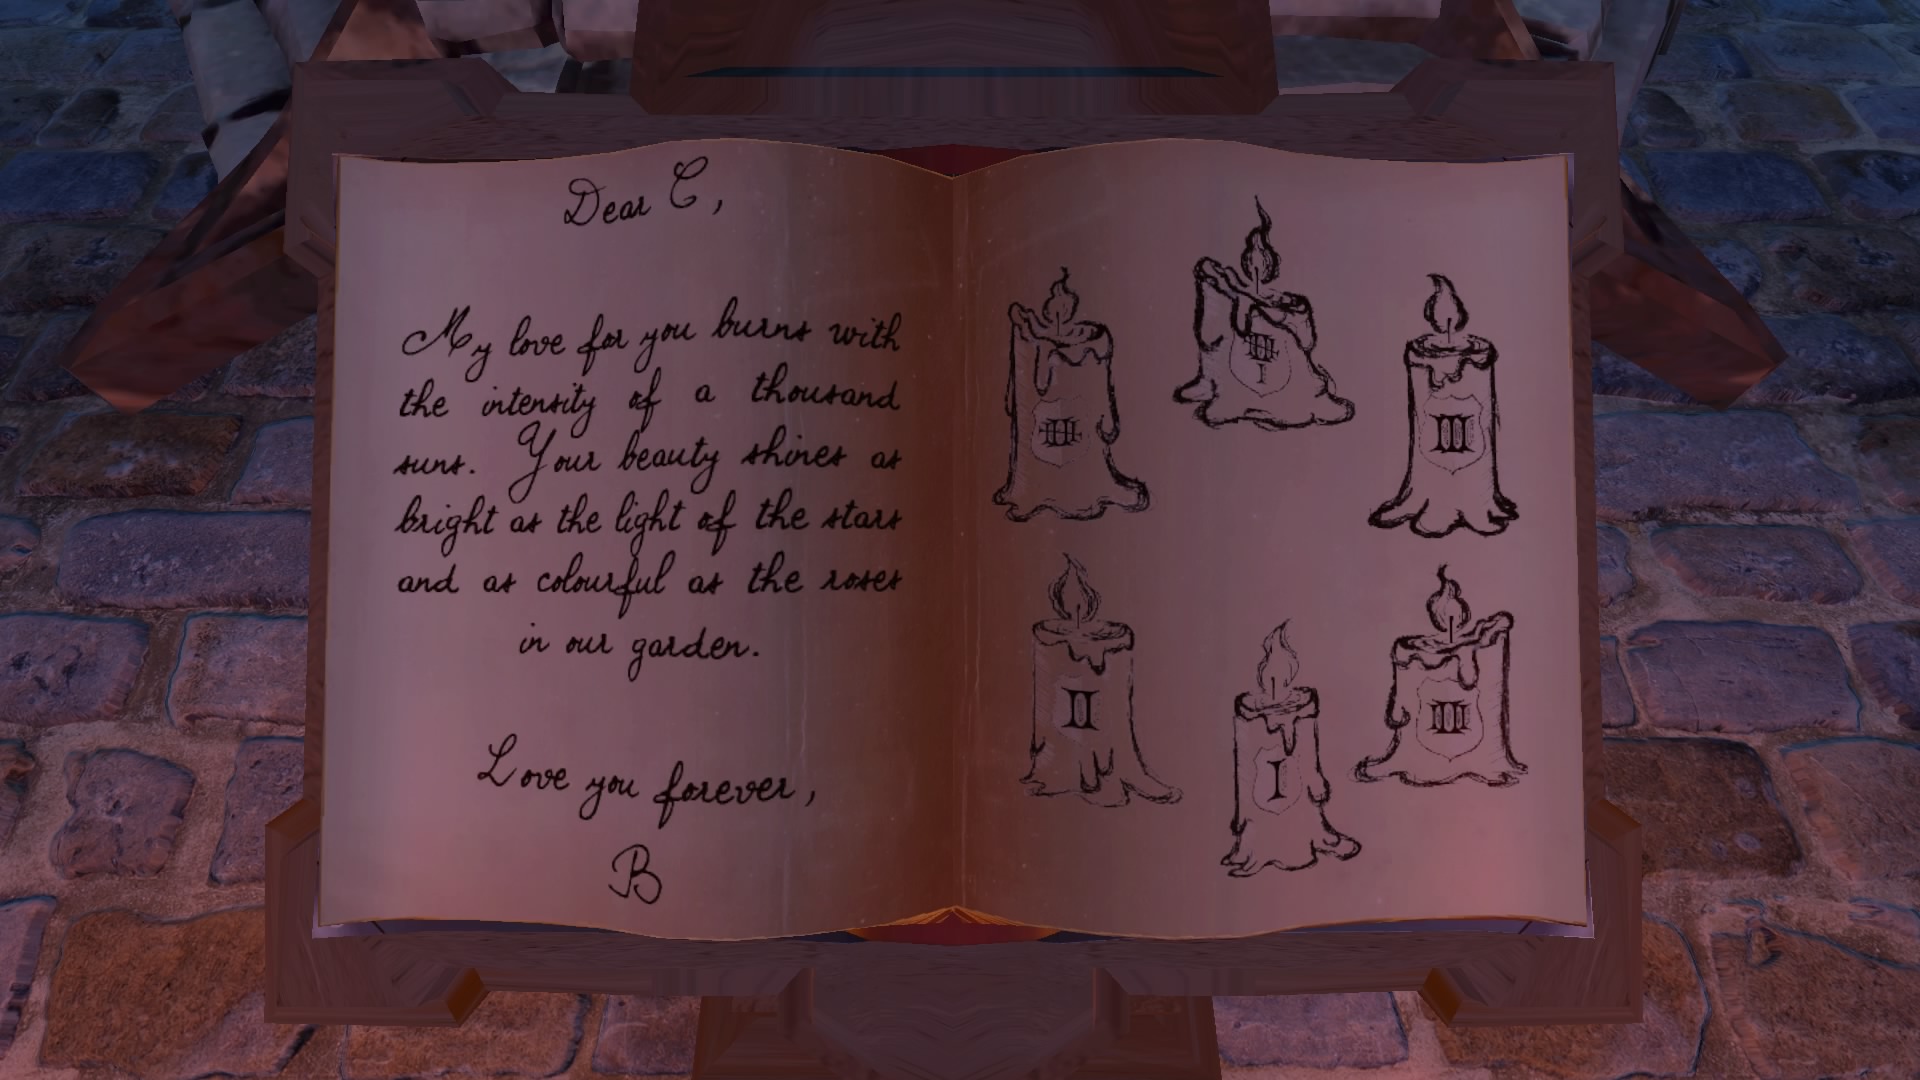 Dear C,
My love for you burns with
the intensity of a thousand
suns. Your beauty shines as
bright as the light of the stars
and as colourful as the roses
in our garden.
Love you forever,
B
III
II
I
III